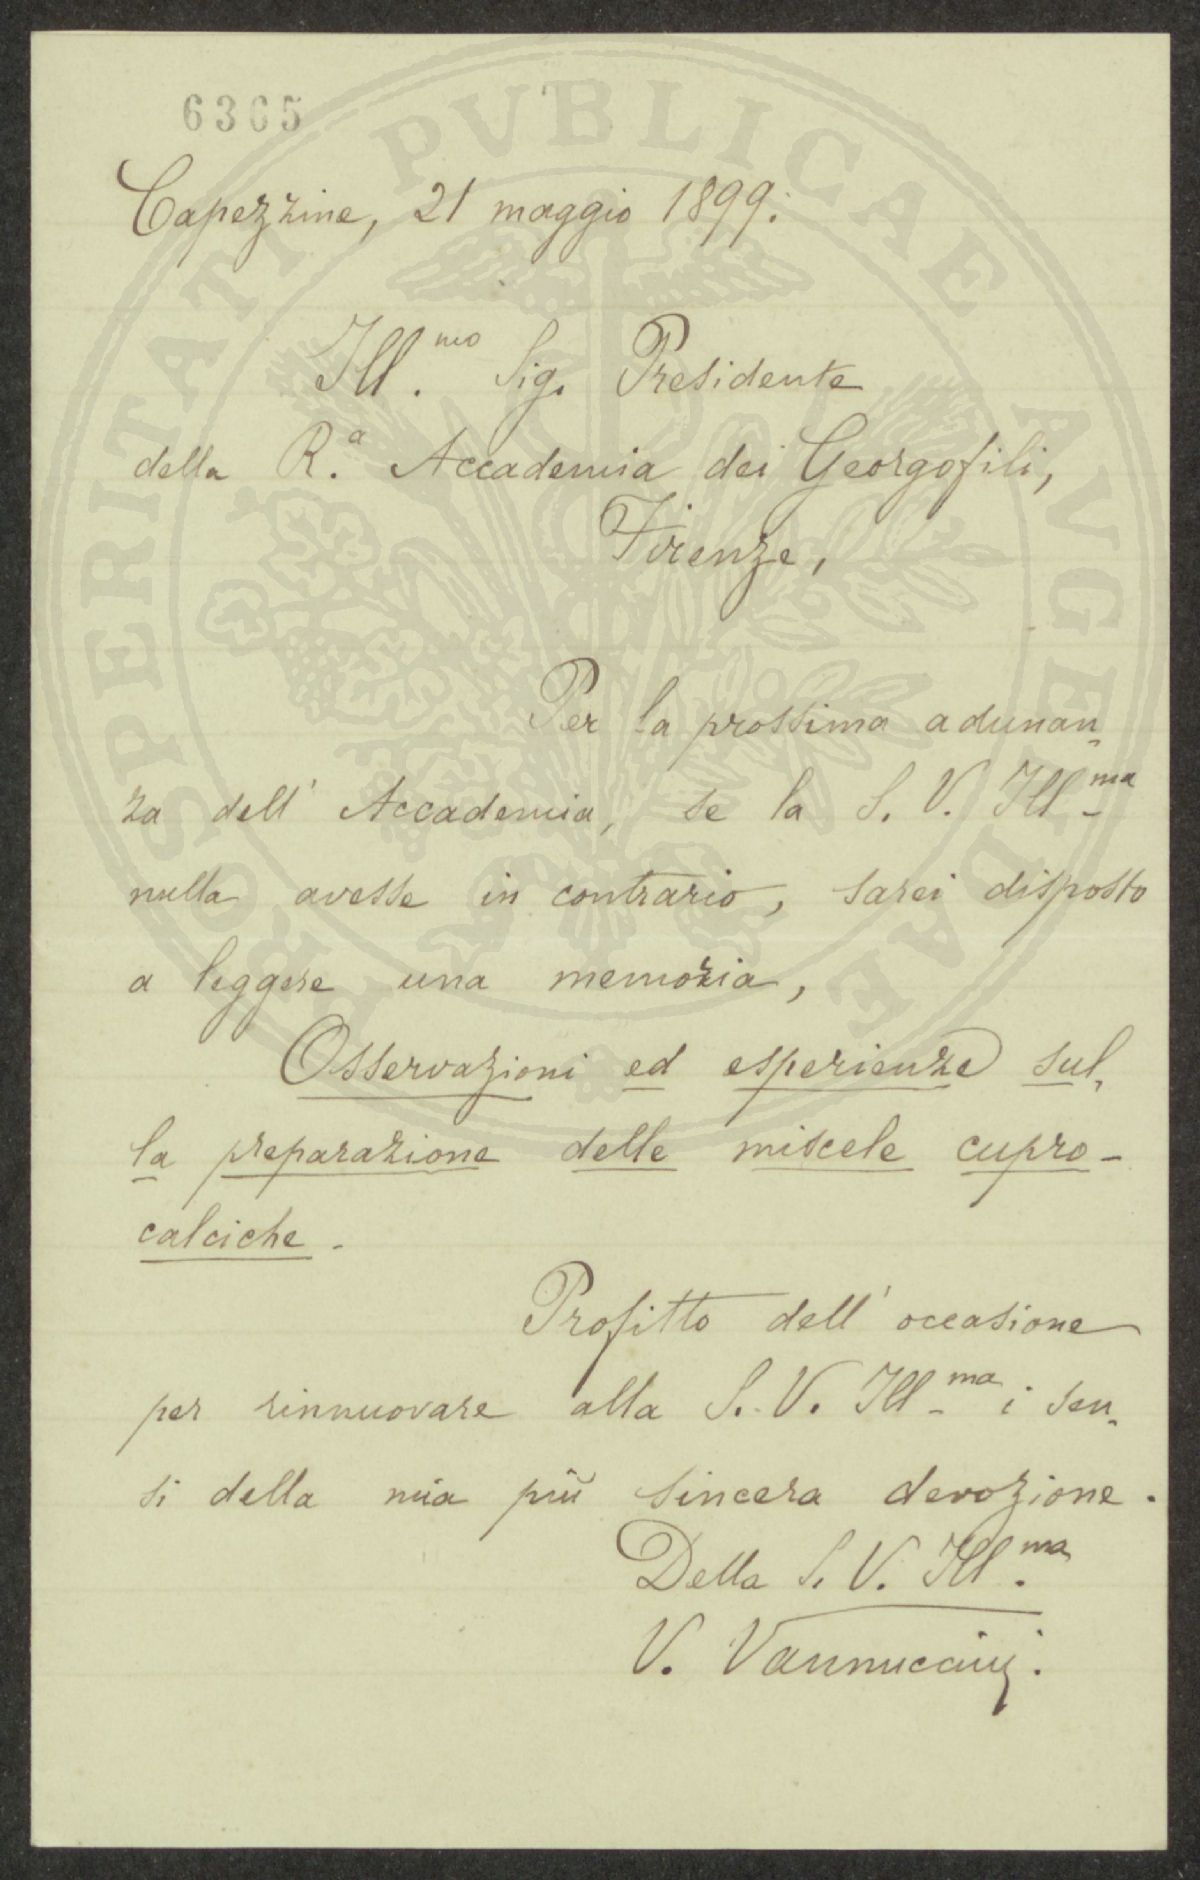 6365
PROSPERITATI PVBLICAE AVGENDAE
Capezzine, 21 maggio 1899.
Ill.mo Sig. Presidente
della R.a Accademia dei Georgofili,
Firenze,
Per la prossima adunan-
za dell' Accademia, se la S. V. Ill.ma
nulla avesse in contrario, sarei disposto
a leggere una memoria,
Osservazioni ed esperienze sul-
la preparazione delle miscele cupro-
calciche.
Profitto dell' occasione
per rinnuovare alla S. V. Ill.ma i sen-
si della mia più sincera devozione.
Della S. V. Ill.ma
V. Vannuccinj.